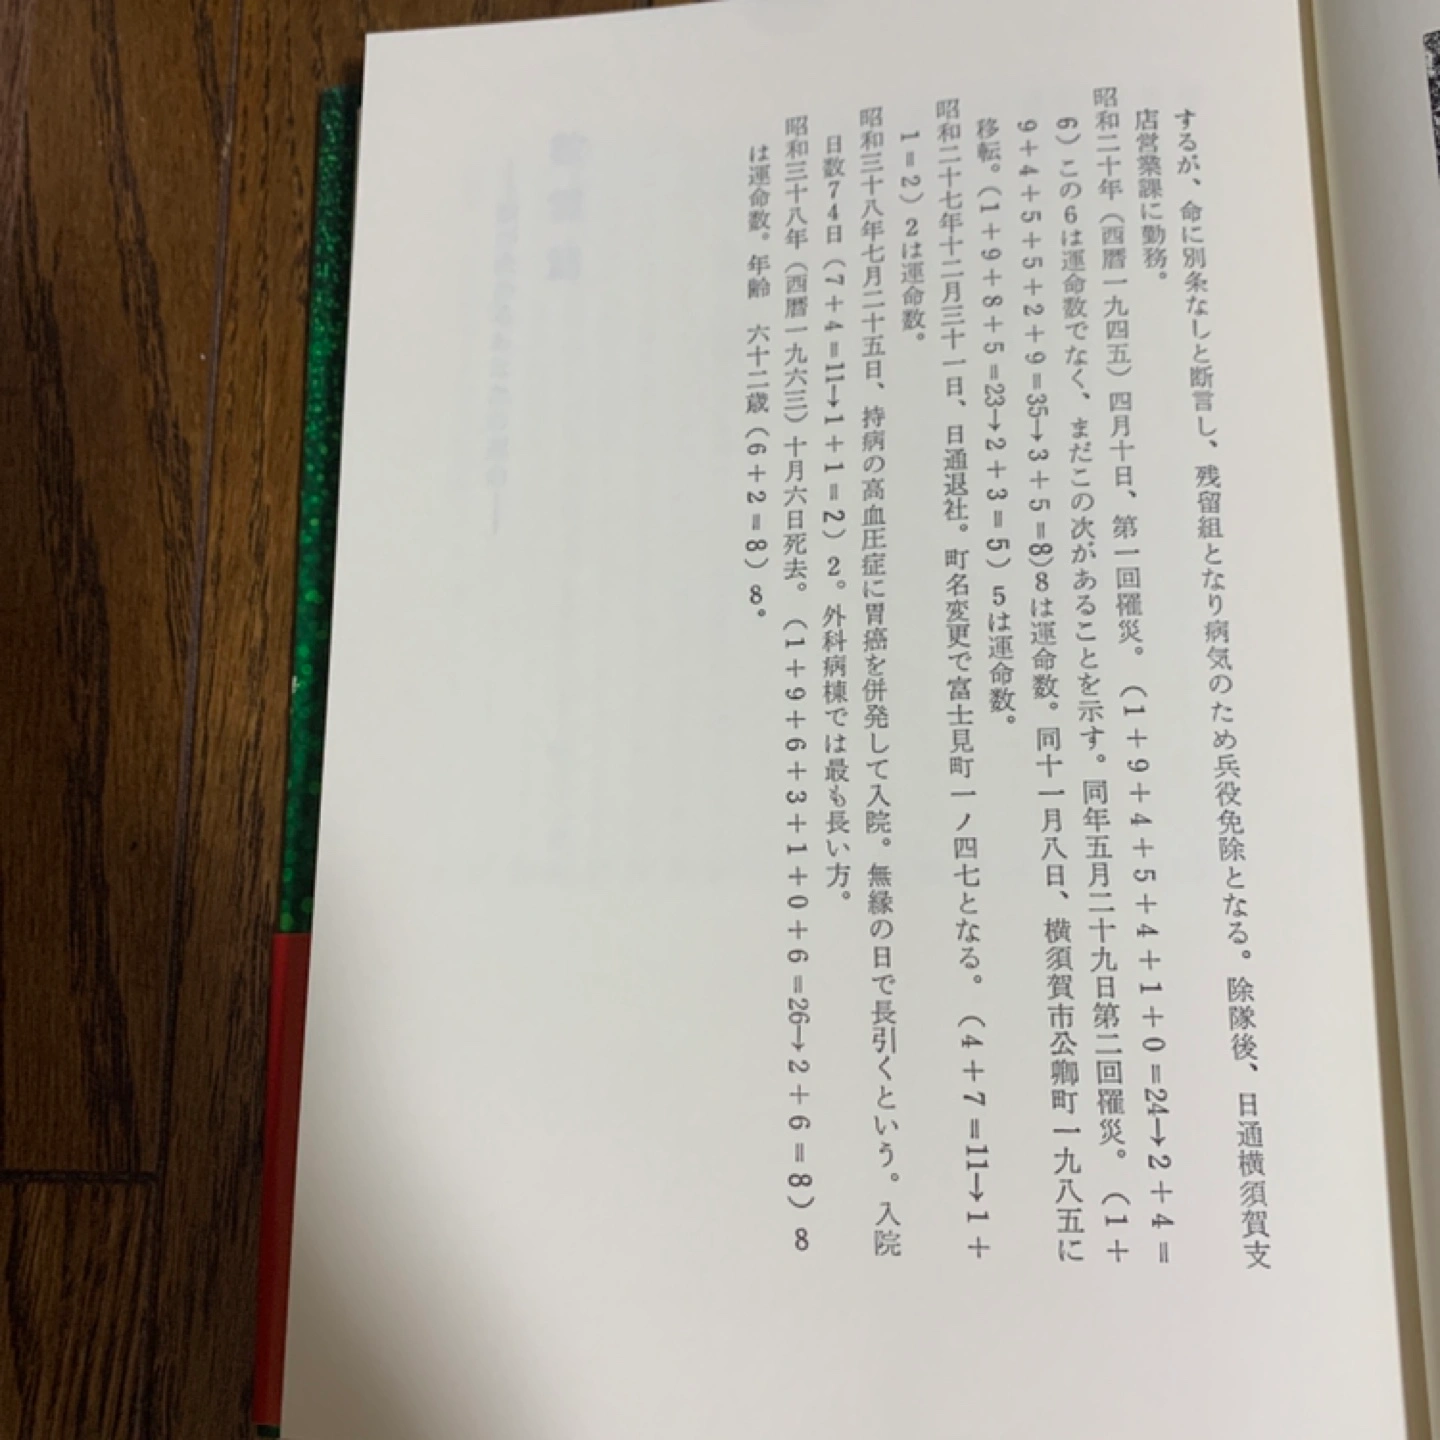 するが、命に別条なしと断言し、残留組となり病気のため兵役免除となる。除隊後、日通横須賀支
店営業課に勤務。
昭和二十年（西暦一九四五）四月十日、第一回罹災。（1＋9＋4＋5＋4＋1＋0＝24→2＋4＝
6）この6は運命数でなく、まだこの次があることを示す。同年五月二十九日第二回罹災。（1＋
9＋4＋5＋5＋2＋9＝35→3＋5＝8）8は運命数。同十一月八日、横須賀市公郷町一九八五に
移転。（1＋9＋8＋5＝23→2＋3＝5）5は運命数。
昭和二十七年十二月三十一日、日通退社。町名変更で富士見町一ノ四七となる。（4＋7＝11→1＋
1＝2）2は運命数。
昭和三十八年七月二十五日、持病の高血圧症に胃癌を併発して入院。無縁の日で長引くという。入院
日数74日（7＋4＝11→1＋1＝2）2。外科病棟では最も長い方。
昭和三十八年（西暦一九六三）十月六日死去。（1＋9＋6＋3＋1＋0＋6＝26→2＋6＝8）8
は運命数。年齢　六十二歳（6＋2＝8）8。